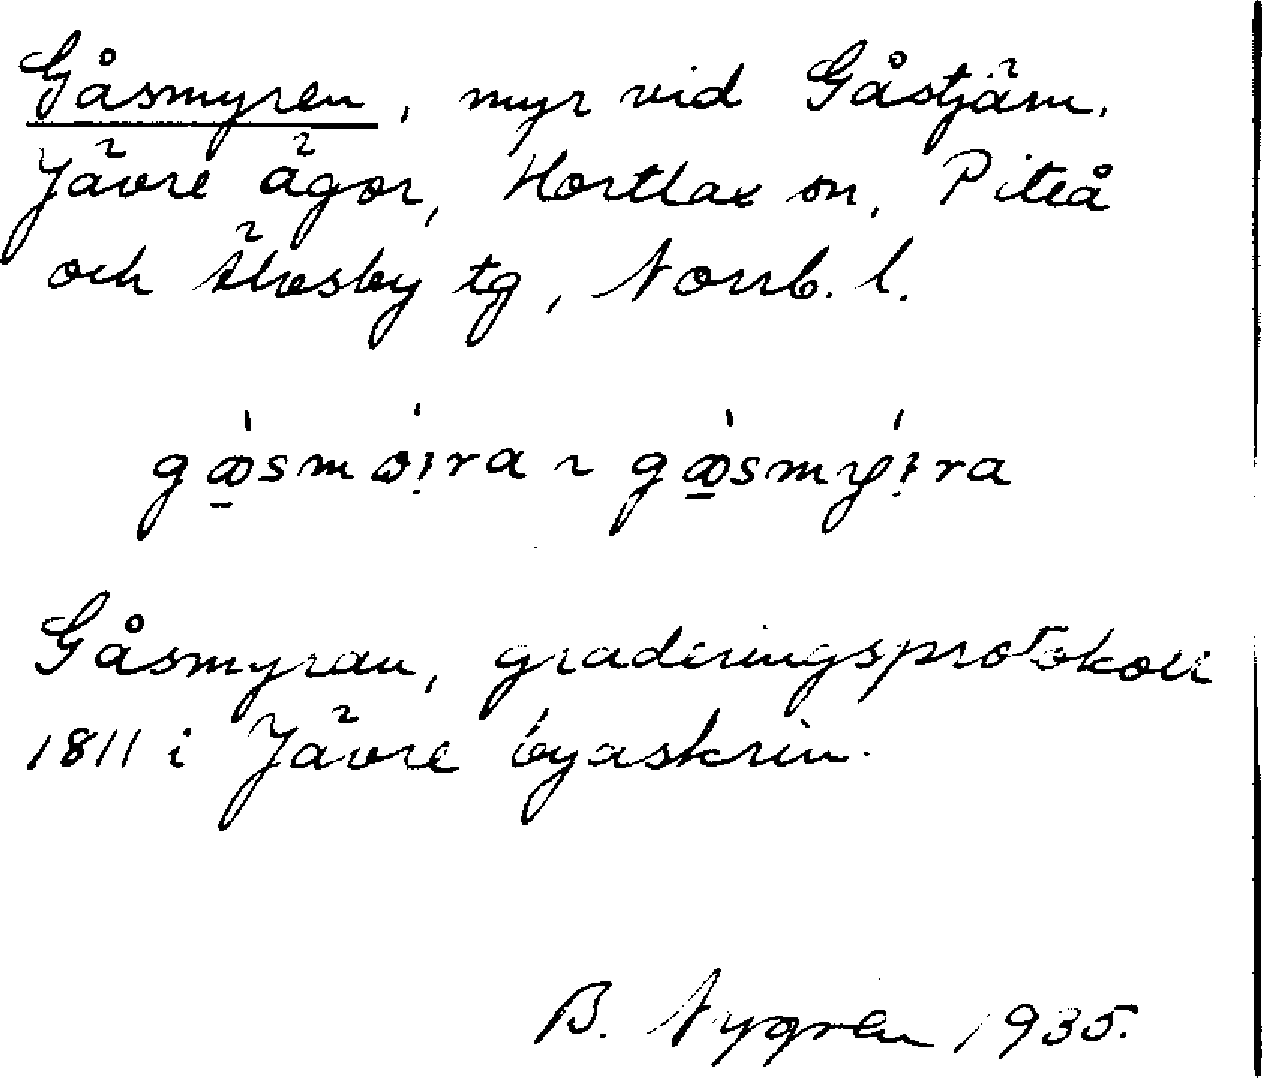 Gåsmyren, myr vid Gåstjärn.
Jävre ägor, Hortlax sn, Piteå
och Älvsby tg, Norrb. l.
1811 i Jävre byaskrin.
Gåsmyran, graderingsprotokoll
B. Nygren 1935.